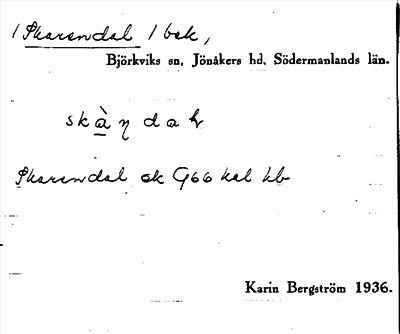 / Skarendal / bsk,
Björkviks sn, Jönåkers hd, Södermanlands län.
Skarendal ek G66 kal hb
Karin Bergström 1936.